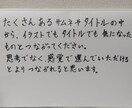 たくさんある サムネや タイトルの中
から、イラストでも タイトルでも 気になった
ものとつながってください。
思考でなく、感覚で選んでいただける
とよりつながれると思います。